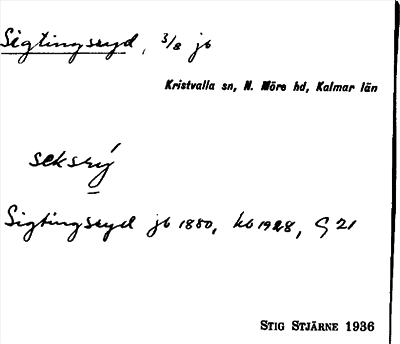 Sigtingsryd, 3/8 jb
Kristvalla sn, N. Möre hd, Kalmar län
seksrý
Sigtingsryd jb 1880, kb 1928, G 21
STIG STJÄRNE 1936